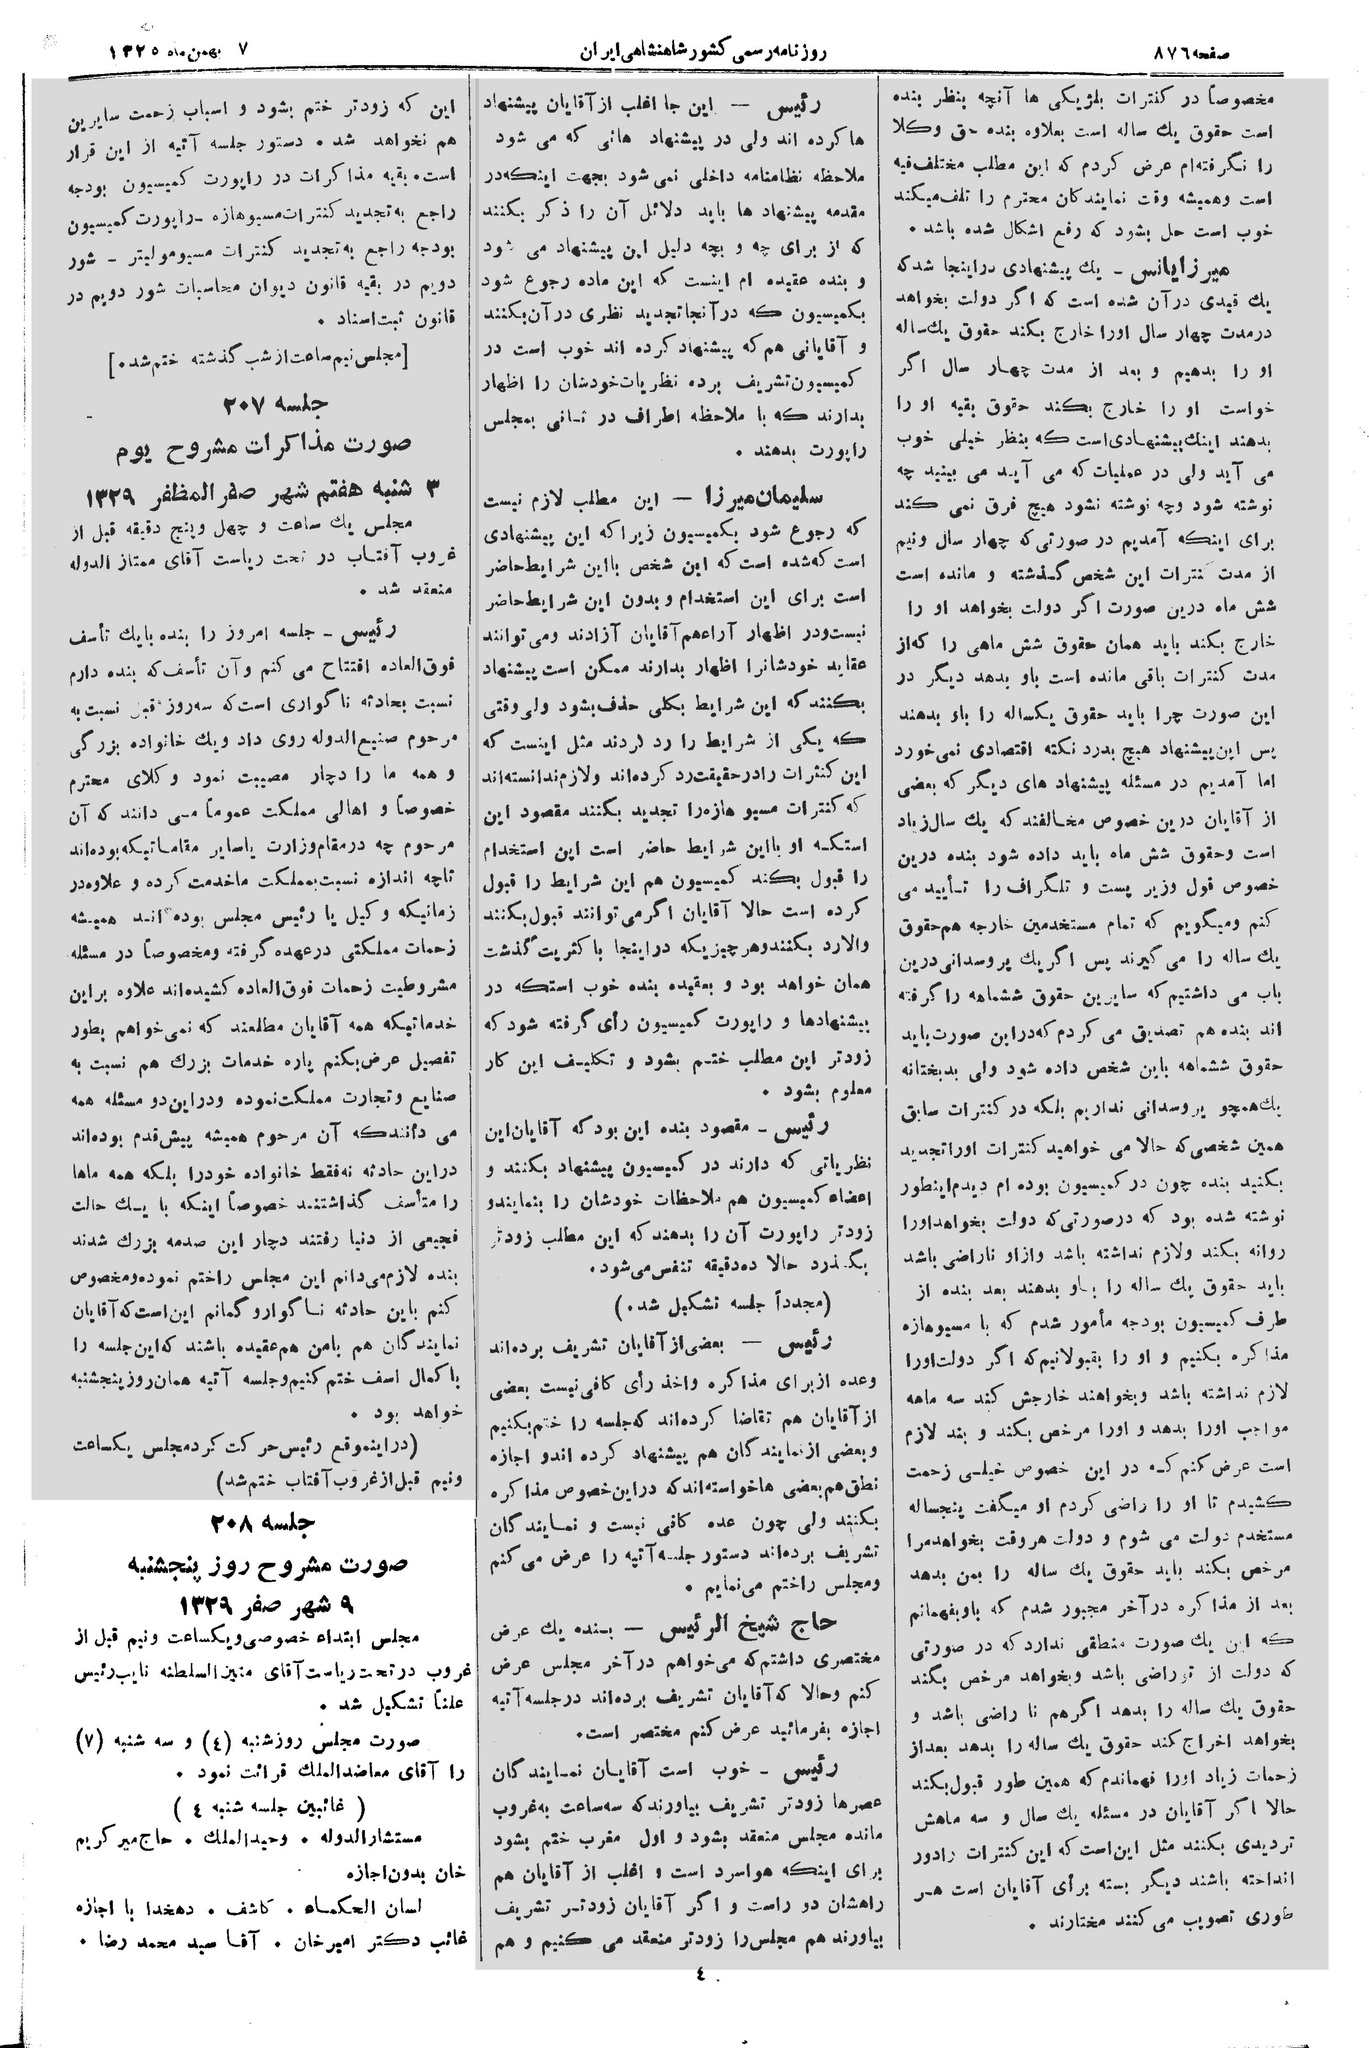 صفحه ۸۷۶
روزنامه رسمی کشور شاهنشاهی ایران
۷ بهمن ماه ۱۳۲۵
مخصوصاً در کنترات بلژیکی ها آنچه بنظر بنده
است حقوق یك ساله است بعلاوه بنده حق وکلا
را نگرفته‌ام عرض کردم که این مطلب مختلف‌فیه
است وهمیشه وقت نمایندکان محترم را تلف‌میکند
خوب است حل بشود که رفع اشکال شده باشد .
میرزایانس ـ یك پیشنهادی دراینجا شدکه
یك قیدی درآن شده است که اگر دولت بخواهد
درمدت چهار سال اورا خارج بکند حقوق یك‌ساله
او را بدهیم و بعد از مدت چهار سال اگر
خواست او را خارج بکند حقوق بقیه او را
بدهند اینك‌پیشنهادی‌است که بنظر خیلی خوب
می آید ولی در عملیات که می آید می بینید چه
نوشته شود وچه نوشته نشود هیچ فرق نمی کند
برای اینکه آمدیم در صورتی‌که چهار سال ونیم
از مدت کنترات این شخص گذشته و مانده است
شش ماه درین صورت اگر دولت بخواهد او را
خارج بکند باید همان حقوق شش ماهی را که‌از
مدت کنترات باقی مانده است باو بدهد دیگر در
این صورت چرا باید حقوق یکساله را باو بدهند
پس این‌پیشنهاد هیچ بدرد نکته اقتصادی نمی‌خورد
اما آمدیم در مسئله پیشنهاد های دیگر که بعضی
از آقایان درین خصوص مخالفند که یك سال‌زیاد
است وحقوق شش ماه باید داده شود بنده درین
خصوص قول وزیر پست و تلگراف را تأیید می
کنم ومیگویم که تمام مستخدمین خارجه هم‌حقوق
یك ساله را می گیرند پس اگر یك پروسدانی‌درین
باب می داشتیم که سایرین حقوق ششماهه را گرفته
اند بنده هم تصدیق می کردم که‌دراین صورت‌باید
حقوق ششماهه باین شخص داده شود ولی بدبختانه
یك‌همچو پروسدانی نداریم بلکه در کنترات سابق
همین شخصی‌که حالا می خواهید کنترات اوراتجدید
بکنید بنده چون در کمیسیون بوده ام دیدم‌اینطور
نوشته شده بود که درصورتی‌که دولت بخواهداورا
روانه بکند ولازم نداشته باشد وازاو ناراضی باشد
باید حقوق یك ساله را باو بدهند بعد بنده از
طرف کمیسیون بودجه مأمور شدم که با مسیوهازه
مذاکره بکنیم و او را بقبولانیم‌که اگر دولت‌اورا
لازم نداشته باشد وبخواهند خارجش کند سه ماهه
مواجب اورا بدهد و اورا مرخص بکند و بند لازم
است عرض‌کنم که در این خصوص خیلی زحمت
کشیدم تا او را راضی کردم او میگفت پنجساله
مستخدم دولت می شوم و دولت هروقت بخواهدمرا
مرخص بکند باید حقوق یك ساله را بمن بدهد
بعد از مذاکره درآخر مجبور شدم که باوبفهمانم
که این یك صورت منطقی نداردکه در صورتی
که دولت از تو راضی باشد وبخواهد مرخص بکند
حقوق یك ساله را بدهد اگرهم نا راضی باشد و
بخواهد اخراج کند حقوق یك ساله را بدهد بعداز
زحمات زیاد اورا فهماندم که همین طور قبول‌بکند
حالا اگر آقایان در مسئله یك سال و سه ماهش
تردیدی بکنند مثل این‌است که این کنترات رادور
انداخته باشند دیگر بسته برأی آقایان است هر
طوری تصویب می کنند مختارند .
رئیس ـ این جا اغلب از آقایان پیشنهاد
ها کرده اند ولی در پیشنهاد هائی که می شود
ملاحظه نظامنامه داخلی نمی شود بجهت اینکه‌در
مقدمه پیشنهاد ها باید دلائل آن را ذکر بکنند
که از برای چه و بچه دلیل این پیشنهاد می شود
و بنده عقیده ام اینست که این ماده رجوع شود
بکمیسیون که درآنجاتجدید نظری درآن‌بکنند
و آقایانی هم‌که پیشنهاد کرده اند خوب است در
کمیسیون‌تشریف برده نظریات‌خودشان را اظهار
بدارند که با ملاحظه اطراف در ثانی بمجلس
راپورت بدهند .
سلیمان‌میرزا ـ این مطلب لازم نیست
که رجوع شود بکمیسیون زیراکه این پیشنهادی
است که‌شده است‌که این شخص بااین شرایط‌حاضر
است برای این استخدام وبدون این شرایط‌حاضر
نیست‌ودر اظهار آراءهم‌آقایان آزادند ومی‌توانند
عقاید خودشانرا اظهار بدارند ممکن است پیشنهاد
بکنند که این شرایط بکلی حذف‌بشود ولی‌وقتی
که یکی از شرایط را رد کردند مثل اینست که
این کنترات رادرحقیقت‌رد کرده‌اند ولازم‌ندانسته‌اند
که کنترات مسیو هازه‌را تجدید بکنند مقصود این
است‌که او بااین شرایط حاضر است این استخدام
را قبول بکند کمیسیون هم این شرایط را قبول
کرده است حالا آقایان اگرمی‌توانند قبول‌بکنند
والارد بکنندوهرچیزیکه دراینجا باکثریت‌گذشت
همان خواهد بود و بعقیده بنده خوب استکه در
پیشنهادها و راپورت کمیسیون رأی گرفته شود که
زودتر این مطلب ختم بشود و تکلیف این کار
معلوم بشود .
رئیس ـ مقصود بنده این بودکه آقایان‌این
نظریاتی که دارند در کمیسیون پیشنهاد بکنند و
اعضاء کمیسیون هم ملاحظات خودشان را بنمایندو
زودتر راپورت آن را بدهندکه این مطلب زودتر
بگذرد حالا ده‌دقیقه تنفس‌می‌شود.
(مجدداً جلسه تشکیل شد .)
رئیس ـ بعضی‌ازآقایان تشریف برده‌اند
وعده ازبرای مذاکره واخذ رأی کافی‌نیست بعضی
ازآقایان هم تقاضا کرده‌اند که‌جلسه را ختم‌بکنیم
وبعضی از نمایندگان هم پیشنهاد کرده اندو اجازه
نطق‌هم‌بعضی هاخواسته‌اندکه دراین‌خصوص مذاکره
بکنند ولی چون عده کافی نیست و نمایندگان
تشریف برده‌اند دستور جلسه‌آتیه را عرض می‌کنم
ومجلس راختم می‌نمایم .
حاج شیخ الرئیس ـ بنده یك عرض
مختصری داشتم‌که می‌خواهم درآخر مجلس عرض
کنم وحالا که‌آقایان تشریف برده‌اند درجلسه‌آتیه
اجازه بفرمائید عرض کنم مختصر است.
رئیس ـ خوب است آقایان نمایندگان
عصرها زودتر تشریف بیاورندکه سه‌ساعت به‌غروب
مانده مجلس منعقد بشود و اول مغرب ختم بشود
برای اینکه هواسرد است و اغلب از آقایان هم
راهشان دو راست و اگر آقایان زودتر تشریف
بیاورند هم مجلس‌را زودتر منعقد می کنیم و هم
این که زودتر ختم بشود و اسباب زحمت سایرین
هم نخواهد شد . دستور جلسه آتیه از این قرار
است. بقیه مذاکرات در راپورت کمیسیون بودجه
راجع به‌تجدید کنترات‌مسیوهازه ـ راپورت‌کمیسیون
بودجه راجع به‌تجدید کنترات مسیومولیتر ـ شور
دویم در بقیه قانون دیوان محاسبات شور دویم در
قانون ثبت‌اسناد .
[مجلس‌نیم‌ساعت‌ازشب گذشته ختم‌شد.]
جلسه ۲۰۷
صورت مذاکرات مشروح یوم
۳ شنبه هفتم شهر صفر المظفر ۱۳۲۹
مجلس یك ساعت و چهل وپنج دقیقه قبل از
غروب آفتاب در تحت ریاست آقای ممتاز الدوله
منعقد شد .
رئیس ـ جلسه امروز را بنده بایك تأسف
فوق‌العاده افتتاح می کنم وآن تأسف‌که بنده دارم
نسبت بحادثه ناگواری است‌که سه‌روز قبل نسبت به
مرحوم صنیع‌الدوله روی داد ویك خانواده بزرگی
و همه ما را دچار مصیبت نمود وکلای محترم
خصوصاً و اهالی مملکت عموماً می دانند که آن
مرحوم چه درمقام‌وزارت یاسایر مقاماتیکه‌بوده‌اند
تاچه اندازه نسبت‌بمملکت ماخدمت کرده و علاوه‌در
زمانیکه وکیل یا رئیس مجلس بوده اند همیشه
زحمات مملکتی درعهده گرفته ومخصوصاً در مسئله
مشروطیت زحمات فوق‌العاده کشیده‌اند علاوه براین
خدماتیکه همه آقایان مطلعند که نمی‌خواهم بطور
تفصیل عرض‌بکنم پاره خدمات بزرك هم نسبت به
صنایع وتجارت مملکت‌نموده ودراین‌دو مسئله همه
می دانندکه آن مرحوم همیشه پیش‌قدم بوده‌اند
دراین حادثه نه‌فقط خانواده خودرا بلکه همه ماها
را متأسف گذاشتند خصوصاً اینکه با یك حالت
فجیعی از دنیا رفتند دچار این صدمه بزرك شدند
بنده لازم‌می‌دانم این مجلس راختم نموده‌ومخصوص
کنم باین حادثه ناگوارو گمانم این‌است‌که‌آقایان
نمایندگان هم بامن هم‌عقیده باشند که‌این‌جلسه را
باکمال اسف ختم کنیم‌وجلسه آتیه همان‌روز‌پنجشنبه
خواهد بود .
(دراینموقع رئیس‌حرکت کردمجلس یکساعت
ونیم قبل‌ازغروب‌آفتاب ختم‌شد)
جلسه ۲۰۸
صورت مشروح روز پنجشنبه
۹ شهر صفر ۱۳۲۹
مجلس ابتداء خصوصی‌ویکساعت ونیم قبل از
غروب در تحت‌ریاست‌آقای متین‌السلطنه نایب‌رئیس
علناً تشکیل شد .
صورت مجلس روزشنبه (٤) و سه شنبه (۷)
را آقای معاضدالملك قرائت نمود .
( غائبین جلسه شنبه ٤ )
مستشارالدوله . وحیدالملك . حاج‌میر کریم
خان بدون‌اجازه
لسان الحکماء . کاشف . دهخدا با اجازه
غائب دکتر امیرخان . آقا سید محمد رضا .
٤